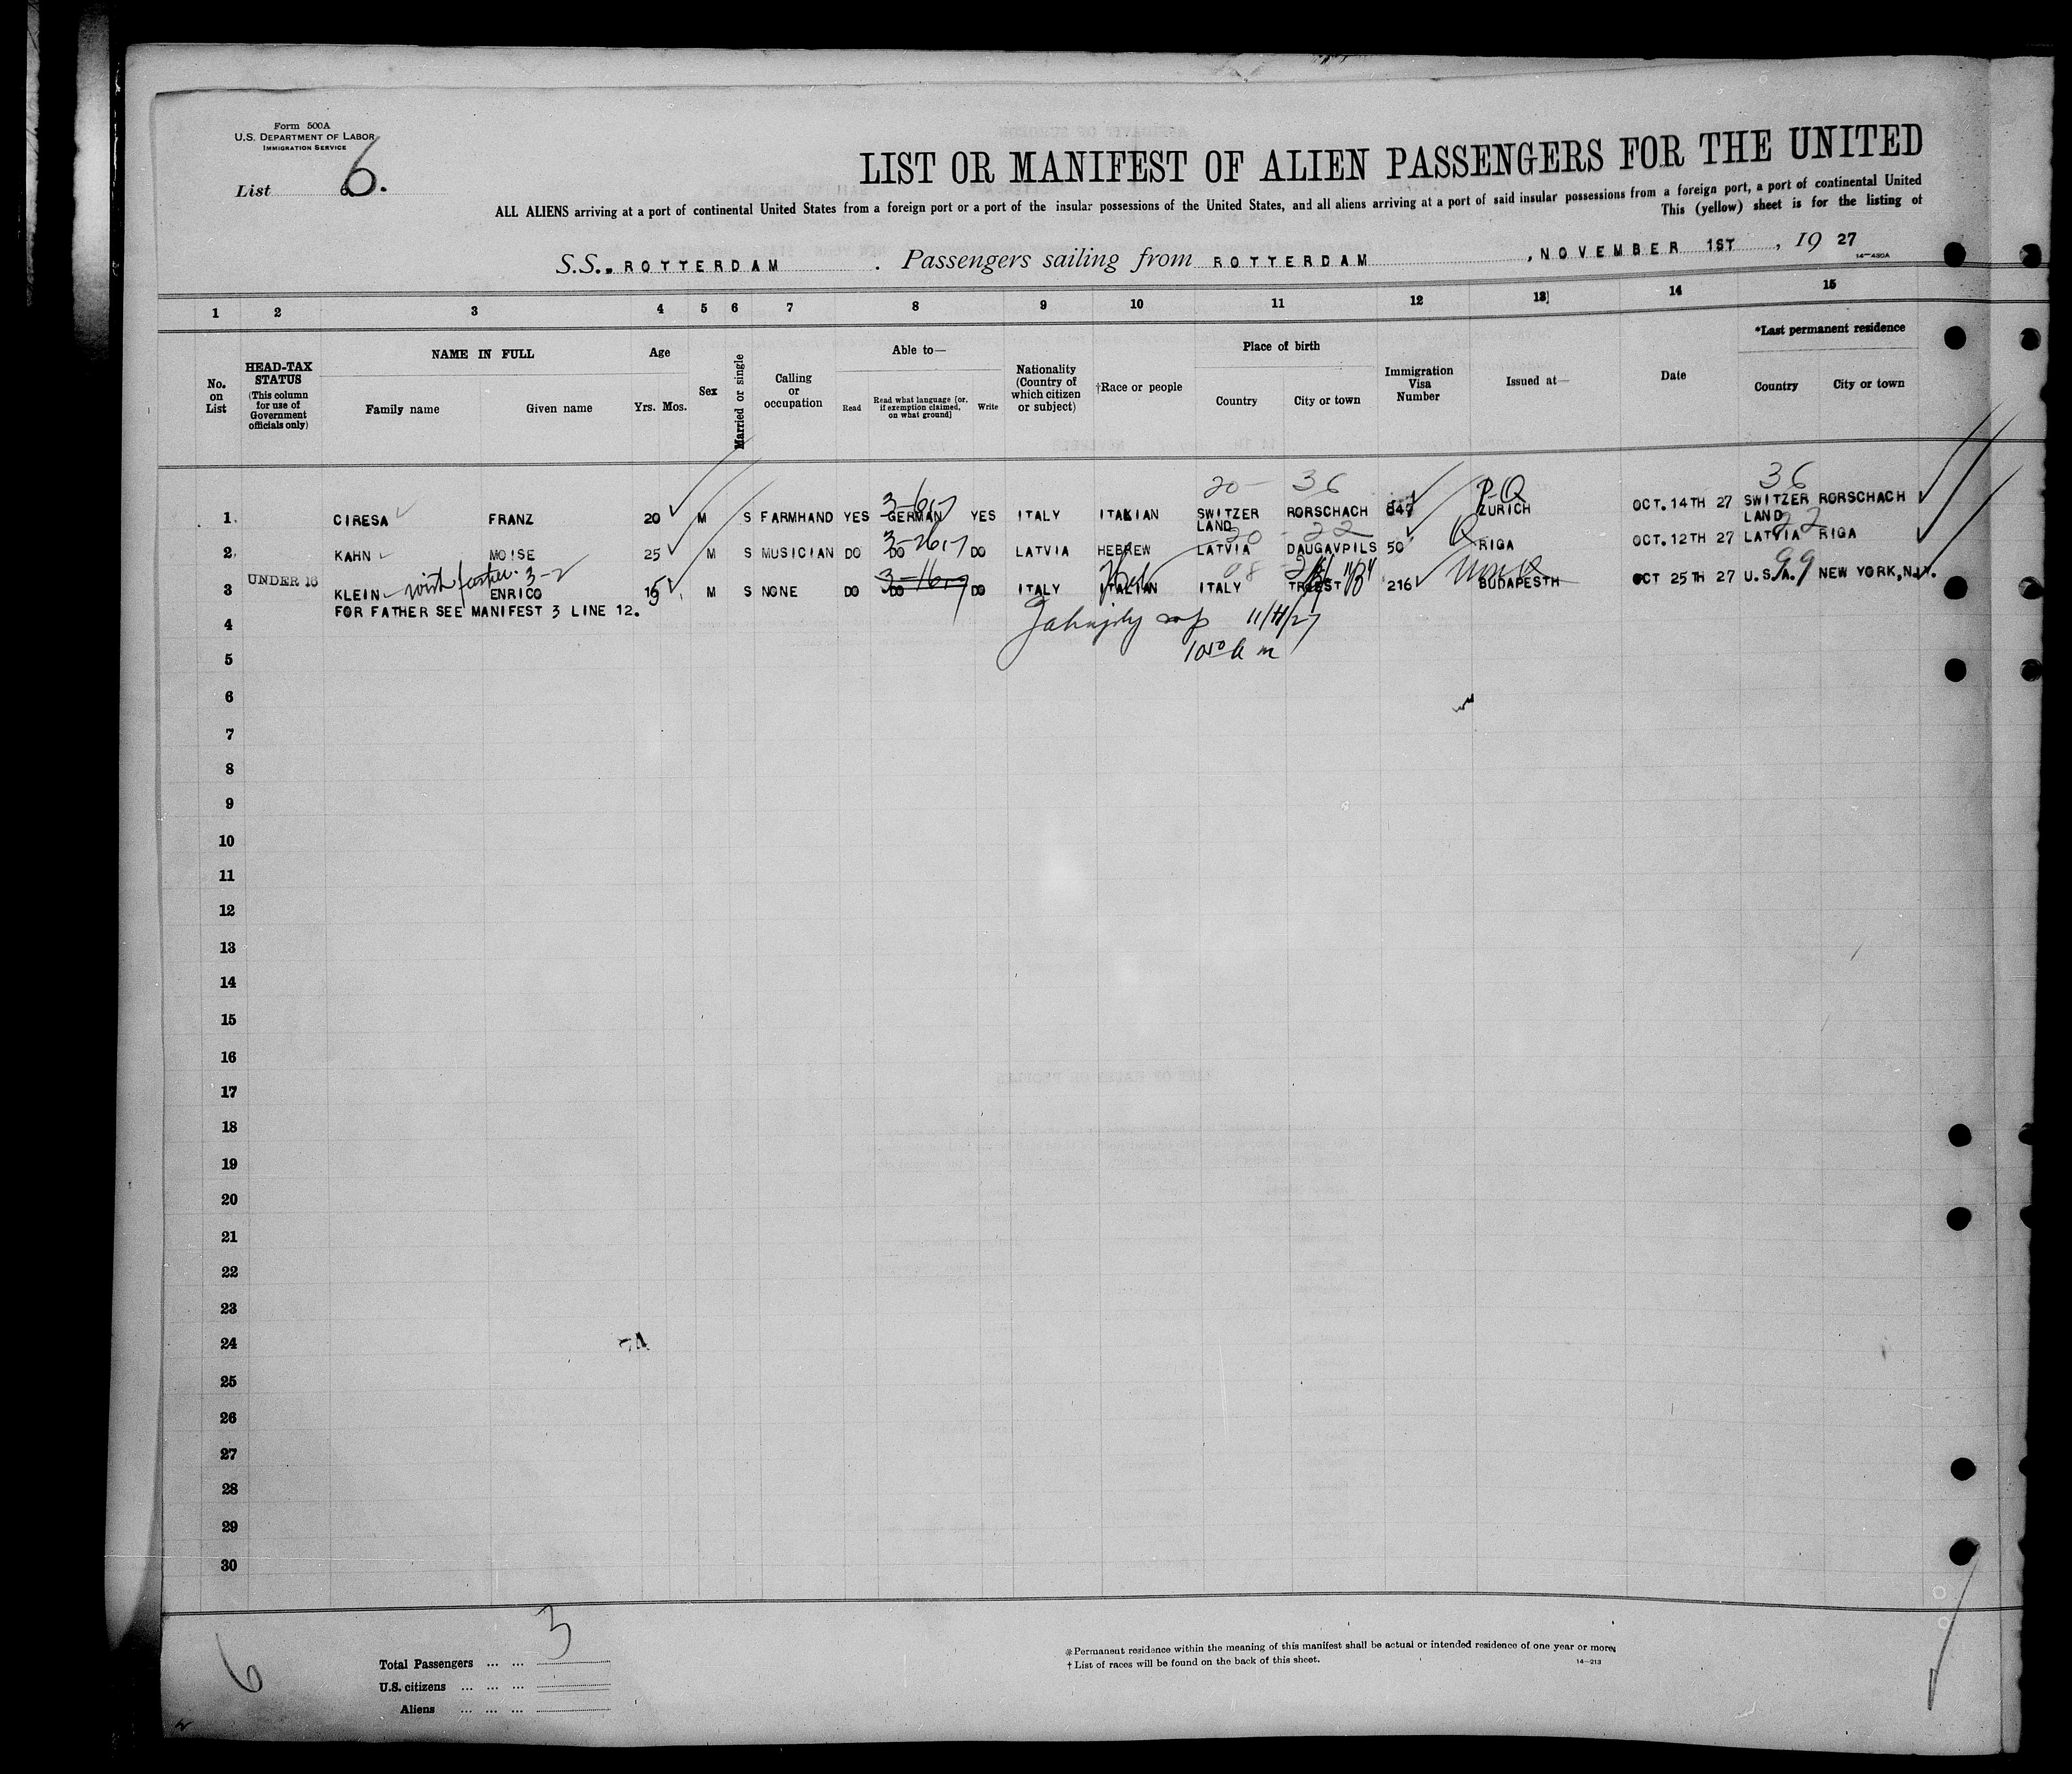 Form 500A
U.S. DEPARTMENT OF LABOR
IMMIGRATION SERVICE
List 6.
LIST OR MANIFEST OF ALIEN PASSENGERS FOR THE UNITED
ALL ALIENS arriving at a port of continental United States from a foreign port or a port of the insular possessions of the United States, and all aliens arriving at a port of said insular possessions from a foreign port, a port of continental United
This (yellow) sheet is for the listing of
S.S. ROTTERDAM . Passengers sailing from ROTTERDAM , NOVEMBER 1ST , 19 27
14—430A
1 2 3 4 5 6 7 8 9 10 11 12 13 14 15
No. on List
HEAD-TAX STATUS (This column for use of Government officials only)
NAME IN FULL
Family name Given name
Age
Yrs. Mos.
Sex
Married or single
Calling or occupation
Able to—
Read Read what language [or, if exemption claimed, on what ground] Write
Nationality (Country of which citizen or subject)
†Race or people
Place of birth
Country City or town
Immigration Visa Number
Issued at—
Date
*Last permanent residence
Country City or town
20— 36 P-Q 36
1 CIRESA FRANZ 20 M S FARMHAND YES GERMAN YES ITALY ITALIAN SWITZER LAND RORSCHACH 847 ZURICH OCT.14TH 27 SWITZER LAND RORSCHACH
20 - 22 Q 22
2 KAHN MOISE 25 M S MUSICIAN DO DO DO LATVIA HEBREW LATVIA DAUGAVPILS 50 RIGA OCT.12TH 27 LATVIA RIGA
UNDER 16 with father 3-2 08 99
3 KLEIN ENRICO 15 M S NONE DO DO DO ITALY ITALIAN ITALY TRIEST 216 BUDAPESTH OCT 25TH 27 U.S.A. NEW YORK,N.Y.
FOR FATHER SEE MANIFEST 3 LINE 12.
11/11/27
4
5
6
7
8
9
10
11
12
13
14
15
16
17
18
19
20
21
22
23
24
25
26
27
28
29
30
6
Total Passengers ... ... 3
U.S. citizens ... ... ...
Aliens ... ... ...
*Permanent residence within the meaning of this manifest shall be actual or intended residence of one year or more.
†List of races will be found on the back of this sheet.
14—213